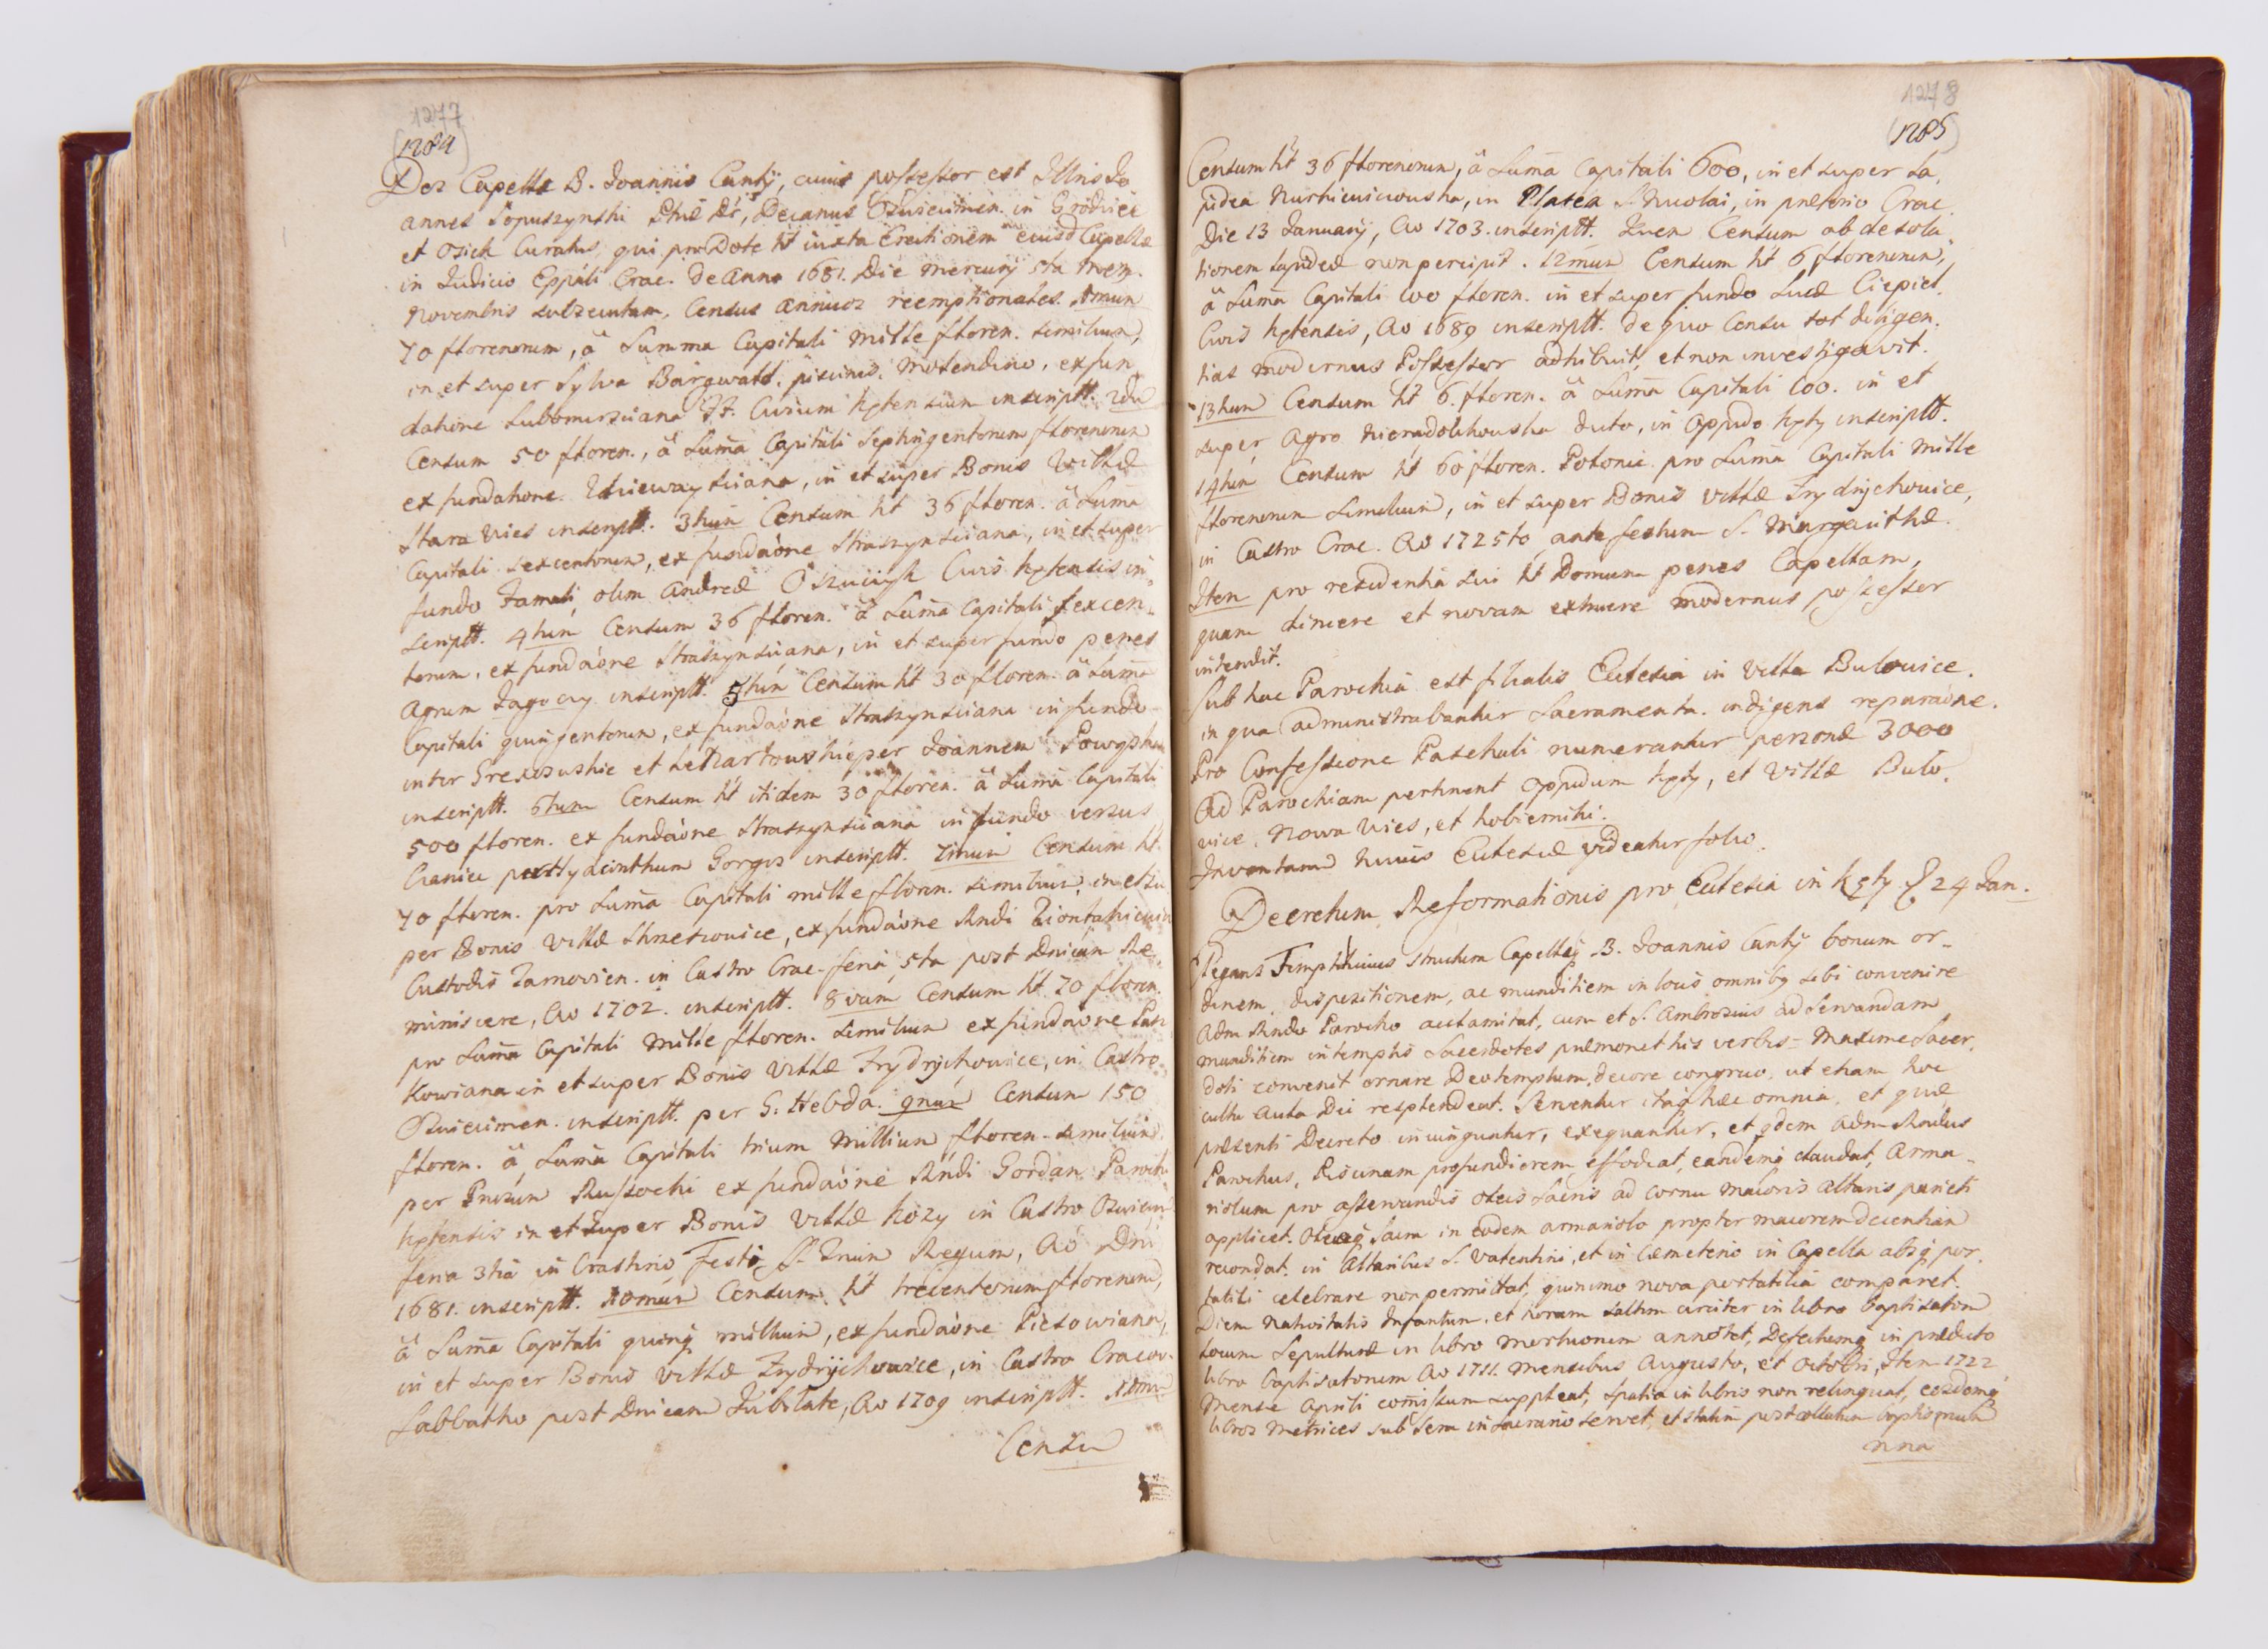 1277
(1284)
Dos Capellæ B. Joannis Cantÿ, cuius possessor est Illris Jo
annes Łopuszynski Phiæ Dr, Decanus Osuiecimen. in Grodziec
et Osiek Curatus, qui pro Dote ht iuxta Erectionem eiusd Capellæ
in Judicio Eppali Crac. de Anno 1681. Die Mercurÿ 5ta mens.
Novembris subsecutam, Census annuos reemptionales. Imum
70 florenorum, à Summa Capitali mille floren. similium,
in et super Sylva Bargwald, piscinis, Molendino, ex fun
datione Lubomirsciana FF. Civium Kętensium inscriptt. 2du
Censum 50 floren., à Suma Capitali Septingentorum florenorum
ex fundatione, in et super Bonis Villæ
Stara Wies inscriptt. 3tium Censum ht 36 floren. à Suma
Capitali sexcentorum, ex fundaone Straszynsciana, in et super
fundo Famati, olim Andreæ Civis Kętensis in,
scriptt. 4tum Censum 36 floren. à Suma Capitali sexcen,
torum, ex fundaone Straszynsciana, in et super fundo penes
Agrum Zagocry inscriptt. 5tum Censum ht 30 floren. à Suma
Capitali quingentorum, ex fundaone Straszynsciana in fundo
inter et per Joannem
inscriptt. 6tum Censum ht itidem 30 floren. à Suma Capitali
500 floren. ex fundaone Straszynsciana in fundo versus
Czaniec per Hyacinthum Gorgos inscriptt. 7mum Censum ht
70 floren. pro Suma Capitali mille floren. similium, in et su
per Bonis Villæ, ex fundaone Rndi
Custodis Tarnovien. in Castro Crac. feria 5ta post Dnicam Re,
miniscere, Ao 1702. inscriptt. 8vum Censum ht 70 floren.
pro Suma Capitali mille floren. similium ex fundaone
in et super Bonis Villæ Frydrÿchowice, in Castro
Osuiecimen. inscriptt. per G. Hebda. 9num Censum 150
floren. à Suma Capitali trium Millium floren. similium
per Russocki ex fundaone Rndi Gordan Parochi
Kętensis in et super Bonis Villæ Kozy in Castro Osuiecim
feria 3tia in Crastino Festi S. Trium Regum, Ao Dni
1681. inscriptt. 10mum Censum ht trecentorum florenorum,
à Suma Capitali quinq millium, ex fundaone,
in et super Bonis Villæ Frydrÿchowice, in Castro Cracov.
Sabbatho post Dnicam Jubilate, Ao 1709 inscriptt. 11mu
Censu
1278
(1285)
Censum ht 36 florenorum, à Suma Capitali 600, in et super La,
pidea, in Platea S. Nicolai, in prætorio Crac.
Die 13 Januarÿ, Ao 1703. inscriptt. Quem Censum ob desola,
tionem lapideæ non percipit. 12mum Censum ht 6 florenorum,
à Suma Capitali 100 floren. in et super fundo Lucæ Ciepiel,
Civis Kętensis, Ao 1689 inscriptt. de quo Censu tot diligen,
tias modernus Possessor adhibuit, et non investigavit.
13tium Censum ht 6. floren. à Suma Capitali 100. in et
super Agro dicto, in Oppido Kęty inscriptt.
14tum Censum ht 60 floren. Polonic. pro Suma Capitali mille
florenorum similium, in et super Bonis Villæ Frydrychowice,
in Castro Crac. Ao 1725to ante festum S. Margarithæ.
Item pro residentia sui ht Domum penes Capellam,
quam diruere et novam extruere modernus possessor
intendit.
Sub hac Parochia est filialis Ecclesia in Villa Bulowice.
in qua administrabantur Sacramenta. indigens reparaone.
Pro Confessione Paschali numerantur personæ 3000
Ad Parochiam pertinent Oppidum Kęty, et Villæ Bulo,
vice, Nowa Wies, et Kobiernihi.
Inventarium huius Ecclesiæ videatur folio.
Decretum Reformationis pro Ecclesia in Kęty D. 24 Jan.
Elegans Templi huius structura Capellæq B. Joannis Cantÿ bonum or-
dinem, dispositionem, ac munditiem in locis omnibq sibi convenire
Adm Rndo Parocho acclamitat, cum et S. Ambrosius ad servandam
munditiem in templis Sacerdotes præmonet his verbis = Maxime Sacer,
doti convenit ornare Dei templum, decore congruo, ut etiam hoc
cultu Aula Dei resplendeat. Serventur itaq hæc omnia, et quæ
præsenti Decreto iniunguntur, exequantur, et qdem Adm Rndus
Parochus, Piscinam profundiorem effodiat, eandemq claudat, Arma-
riolum pro asservandis oleis sacris ad cornu maioris altaris parieti
applicet. Oleaq sacra in eodem armariolo propter maiorem decentiam
recondat. in Altaribus S. Valentini, et in Cæmeterio in Capella absq por,
tatili celebrare non permittat, quinimo nova portatilia comparet.
Diem Nativitatis Infantum, et horam saltim circiter in libro baptisatorum
Locum Sepulturæ in libro Mortuorum annotet, Defectumq in prædicto
libro baptisatorum Ao 1711. Mensibus Augusto, et Octobri, Item 1722
Mense Aprili comissum suppleat, Spatia in libris non relinquat, eosdemq
libros Metrices sub sera in Sacrario servet, et statim post collatum baptismum
nna